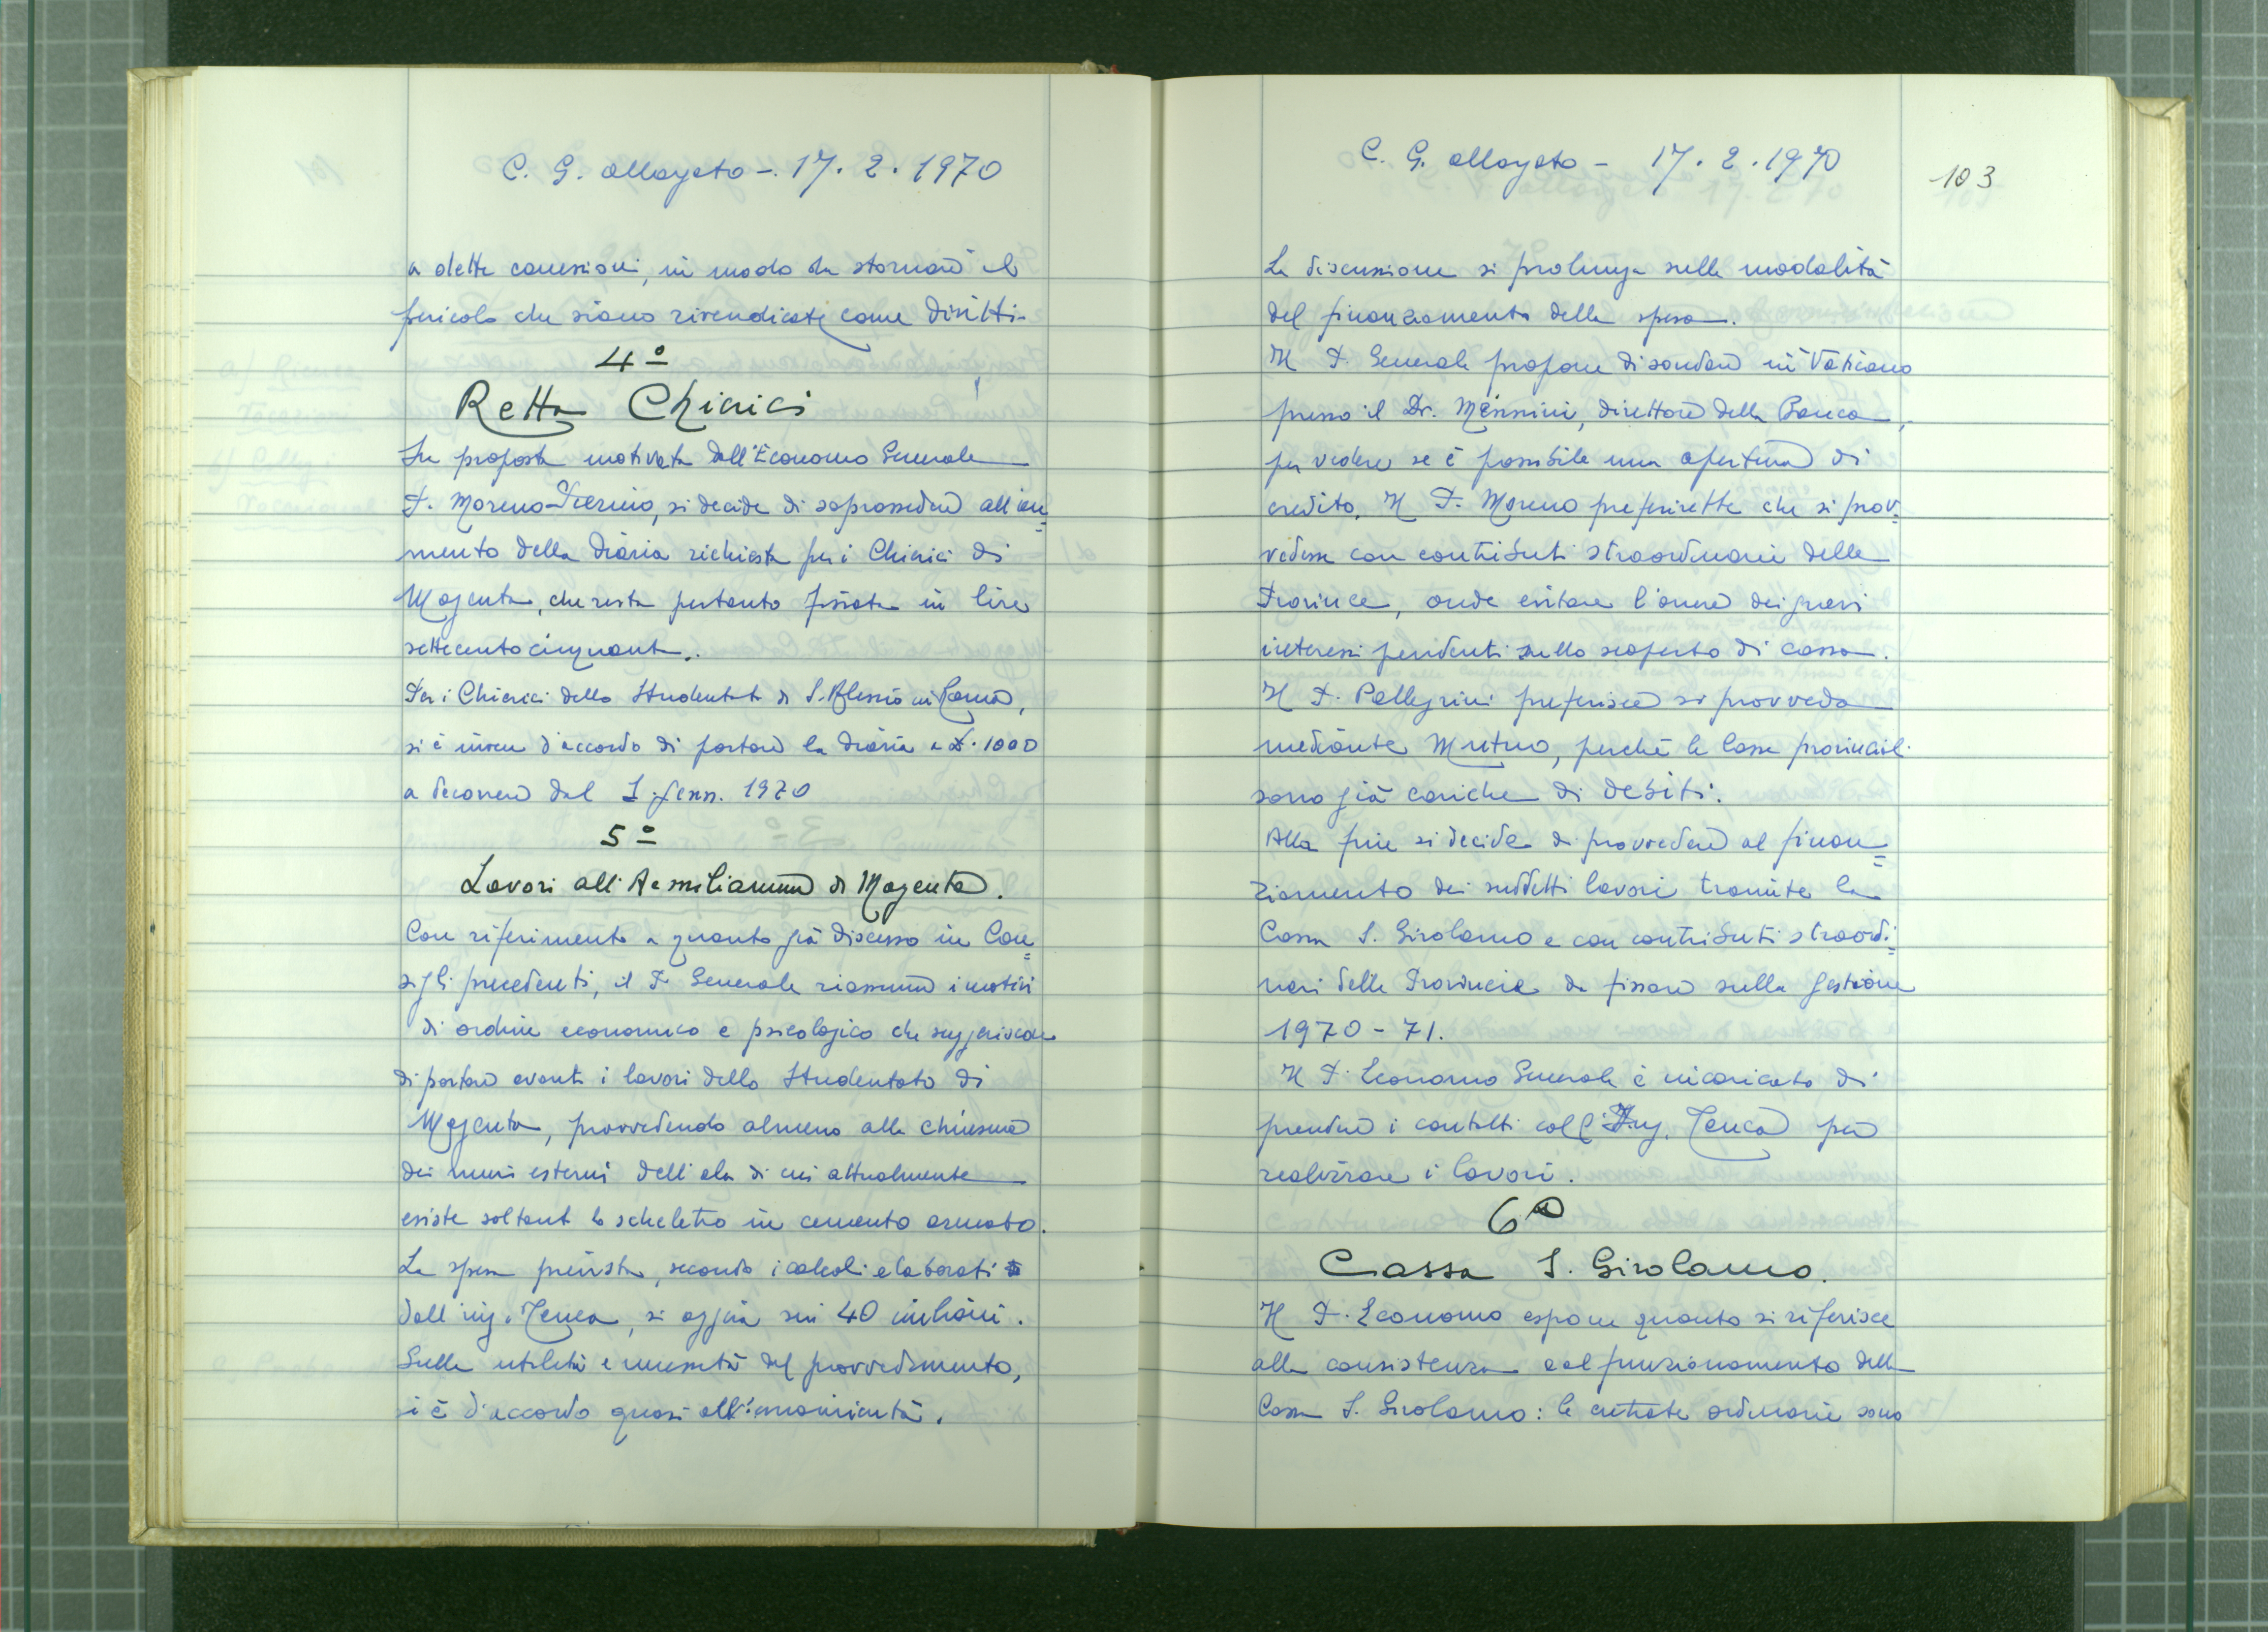 C. G. allargato -. 17. 2. 1970
a dette concessioni, in modo da stornare il
pericolo che siano rivendicate come diritti.
4º
Retta Chierici
Su proposta motivata dall'Economo Generale
P. Moreno Pierino, si decide di soprassedere all'au=
mento della diaria richiesta per i Chierici di
Magenta, che resta pertanto fissata in lire
settecentocinquanta.
Per i Chierici dello Studentato di S. Alessio in Roma,
si è invece d'accordo di portare la diaria a £. 1000
a decorrere dal 1 genn. 1970
5º
Lavori all'Aemilianum di Magenta.
Con riferimento a quanto già discusso in Con=
sigli precedenti, il P. Generale riassume i motivi
di ordine economico e psicologico che suggeriscono
di portare avanti i lavori dello Studentato di
Magenta, provvedendo almeno alla chiusura
dei muri esterni dell'ala di cui attualmente
esiste soltanto lo scheletro in cemento armato.
La spesa prevista, secondo i calcoli elaborati
dall'ing. Tenca, si aggira sui 40 milioni.
Sulla utilità e necessità del provvedimento,
si è d'accordo quasi all'unanimità.
C. G. allargato - 17. 2. 1970
103
La discussione si prolunga sulle modalità
del finanziamento della spesa.
Il P. Generale propone di sondare in Vaticano
presso il Dr. Mennini, direttore della Banca,
per vedere se è possibile una apertura di
credito. Il P. Moreno preferirebbe che si prov=
vedesse con contributi straordinari delle
Province, onde evitare l'onere dei gravi
interessi pendenti sullo scoperto di cassa.
Il P. Pellegrini preferisce si provveda
mediante Mutuo, perchè le Casse provinciali
sono già cariche di debiti.
Alla fine si decide di provvedere al finan=
ziamento dei suddetti lavori tramite la
Cassa S. Girolamo e con contributi straordi=
nari delle Provincie da fissare sulla gestione
1970 - 71.
Il P. Economo Generale è incaricato di
prendere i contatti coll'Ing. Tenca per
realizzare i lavori.
6º
Cassa S. Girolamo.
Il P. Economo espone quanto si riferisce
alla consistenza e al funzionamento della
Cassa S. Girolamo: le entrate ordinarie sono